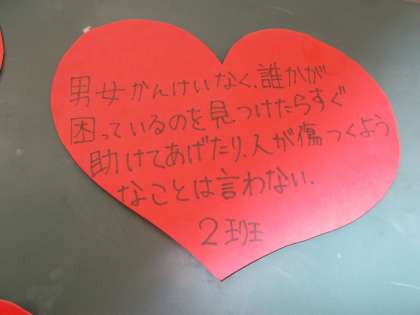 男女かんけいなく、誰かが
困っているのを見つけたらすぐ
助けてあげたり、人が傷つくよう
なことは言わない.
2班